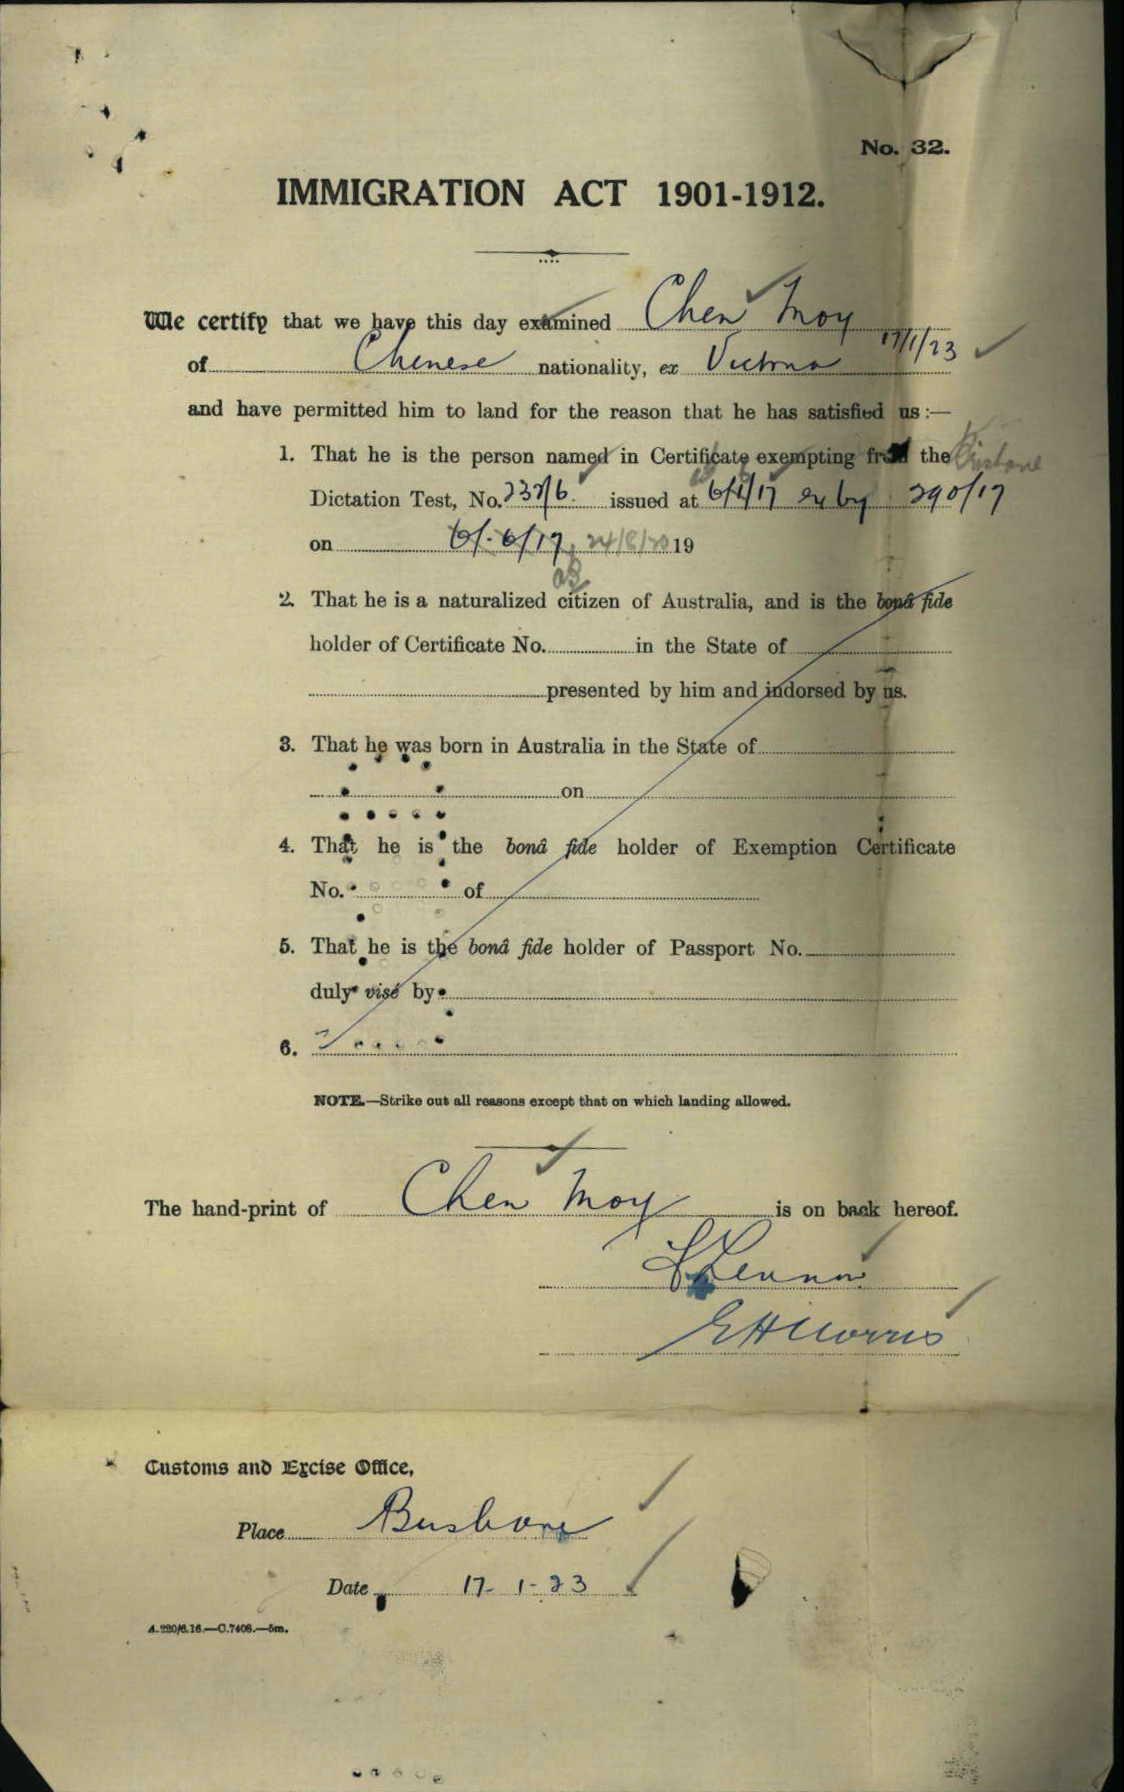 No. 32.
IMMIGRATION ACT 1901-1912.
We certify that we have this day examined Chen Moy
of Chinese nationality, ex Victoria 17/1/23
and have permitted him to land for the reason that he has satisfied us :—
1. That he is the person named in Certificate exempting from the Brisbane
Dictation Test, No. issued at 6/1/17 ex by 290/17
on 6/. 6/17, 24/8/20 19
2. That he is a naturalized citizen of Australia, and is the bonâ fide
holder of Certificate No. in the State of
presented by him and indorsed by us.
3. That he was born in Australia in the State of
on
4. That he is the bonâ fide holder of Exemption Certificate
No. of
5. That he is the bonâ fide holder of Passport No.
duly visé by
6.
NOTE.—Strike out all reasons except that on which landing allowed.
The hand-print of Chen Moy is on back hereof.
EHMorris
Customs and Excise Office,
Place Brisbane
Date 17-1-23
A.220/6.16.—C.7408.—5m.